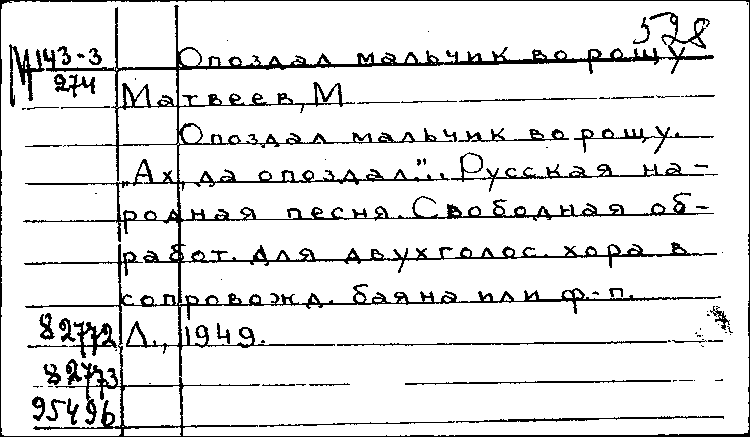 528
М143-3 Опоздал мальчик во рощу
274
Матвеев, М
Опоздал мальчик во рощу.
„Ах, да опоздал."... Русская на-
родная песня. Свободная об-
работ. для двухголос. хора в
сопровожд. баяна или ф.-п.
82772 Л., 1949.
82773
95496